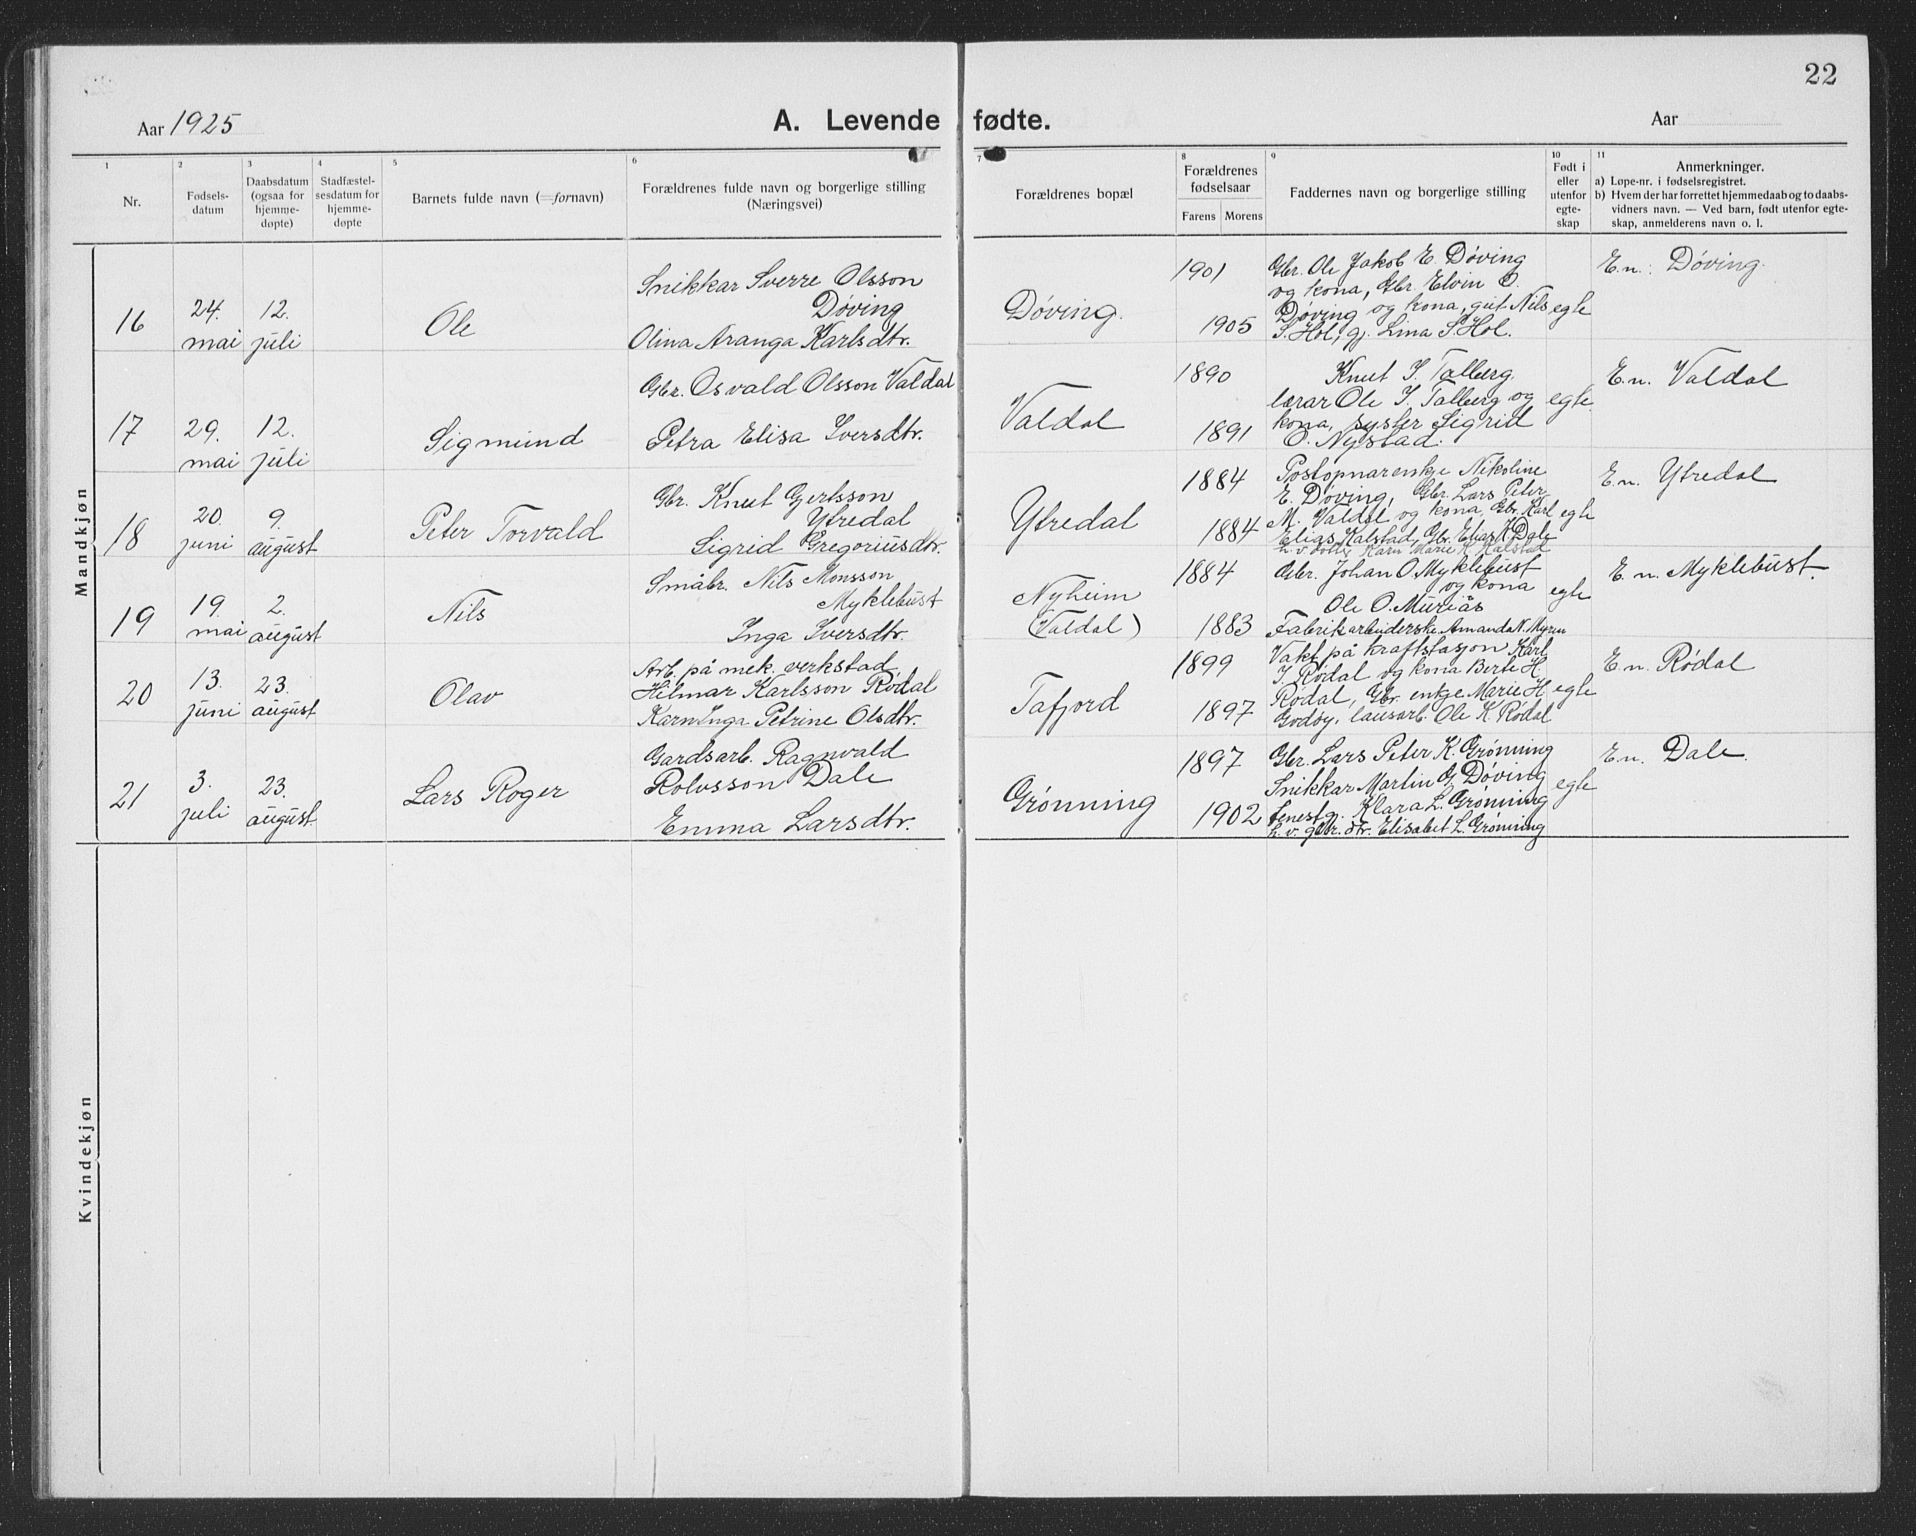 22
Aar 1925
A. Levende fødte.
Aar
1 2 3 4 5 6 7 8 9 10 11
Nr.
Fødsels-
datum
Daabsdatum
(ogsaa for
hjemme-
døpte)
Stadfæstel-
sesdatum for
hjemme-
døpte
Barnets fulde navn (=fornavn)
Forældrenes fulde navn og borgerlige stilling
(Næringsvei)
Forældrenes bopæl
Forældrenes
fødselsaar
Farens Morens
Faddernes navn og borgerlige stilling
Født i
eller
utenfor
egte-
skap
Anmerkninger.
a) Løpe-nr. i fødselsregistret.
b) Hvem der har forrettet hjemmedaab og to daabs-
vidners navn. — Ved barn, født utenfor egte-
skap, anmelderens navn o. l.
Mandkjøn
16
24.
mai
12.
juli
Ole
Snikkar Sverre Olsson
Døving
Olina Aranga Karlsdtr.
Døving.
1901
1905
Gbr. Ole Jakob E. Døving
og kona, Gbr. Elvin O.
Døving og kona, gut Nils
S. Hol, gj. Lina S. Hol.
egte
E.n. Døving.
17
29.
mai
12.
juli
Sigmund
Gbr. Osvald Olsson Valdal
Petra Elisa Iversdtr.
Valdal
1890
1891
Knut I. Talberg
lærar Ole I. Talberg og
kona, syster Sigrid
O. Nystad.
egte.
E.n. Valdal
18
20.
juni
9.
august
Peter Torvald
Gbr. Knut Gjertsson
Ytredal
Sigrid Gregoriusdtr.
Ytredal
1884
1884
Postopnarenkje Nikoline
E. Døving, Gbr. Lars Peter
M. Valdal og kona, Gbr. Karl
Elias Kalstad, Gbr. Elias K. Dale
h. v. dotter Karn Marie K. Kalstad
egte
E.n. Ytredal
19
19.
mai
2.
august
Nils
Småbr. Nils Monsson
Myklebust
Inga Iversdtr.
Nyheim
(Valdal)
1884
1883
Gbr. Johan O. Myklebust
og kona
Ole O. Muriås
Fabrikarbeiderske Amanda N. Myren
egte
E.n. Myklebust.
20
13.
juni
23.
august
Olav
Arb. på mek. verkstad
Hilmar Karlsson Rødal
Karn Inga Petrine Olsdtr.
Tafjord
1899
1897
Vakt på kraftstasjon Karl
I. Rødal og kona Berte H.
Rødal, Gbr. enkje Marie H.
Godøy, lausarb. Ole K. Rødal
egte
E.n. Rødal
21
3.
juli
23.
august.
Lars Roger
Gardsarb. Ragnvald
Rolvsson Dale
Emma Larsdtr.
Grønning
1897
1902
Gbr. Lars Peter K. Grønning
Snikkar Martin G. Døving
tenestg. Klara L. Grønning
h. v. gbr. dtr. Elisabet L. Grønning
egte
E.n. Dale.
Kvindekjøn